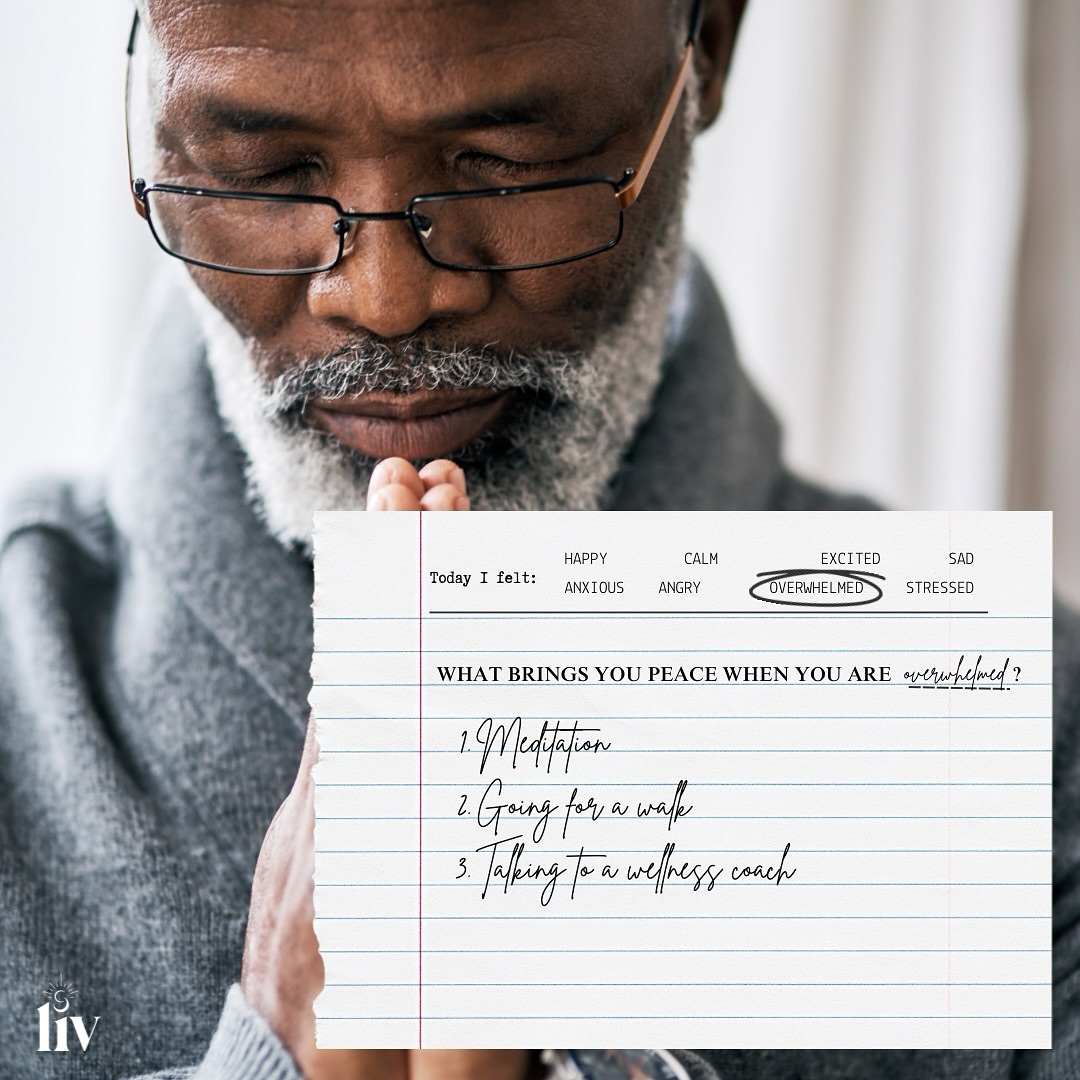 HAPPY CALM EXCITED SAD
Today I felt:
ANXIOUS ANGRY OVERWHELMED STRESSED
WHAT BRINGS YOU PEACE WHEN YOU ARE overwhelmed?
1. Meditation
2. Going for a walk
3. Talking to a wellness coach
liv